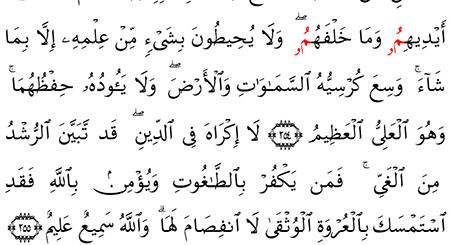 أَيْدِيهِمُۥ وَمَا خَلْفَهُمُۥۖ وَلَا يُحِيطُونَ بِشَےْءٖ مِّنْ عِلْمِهِۦٓ إِلَّا بِمَا
شَآءَۚ وَسِعَ كُرْسِيُّهُ السَّمَٰوَٰتِ وَالْأَرْضَۖ وَلَا يَـُٔودُهُۥ حِفْظُهُمَاۚ
وَهُوَ الْعَلِيُّ الْعَظِيمُ ٢٥٤ لَا إِكْرَاهَ فِي الدِّينِۖ قَد تَّبَيَّنَ الرُّشْدُ
مِنَ الْغَيِّۚ فَمَن يَكْفُرْ بِالطَّٰغُوتِ وَيُؤْمِنۢ بِاللَّهِ فَقَدِ
اِسْتَمْسَكَ بِالْعُرْوَةِ الْوُثْقَىٰ لَا اَنفِصَامَ لَهَاۗ وَاللَّهُ سَمِيعٌ عَلِيمٌ ٢٥٥